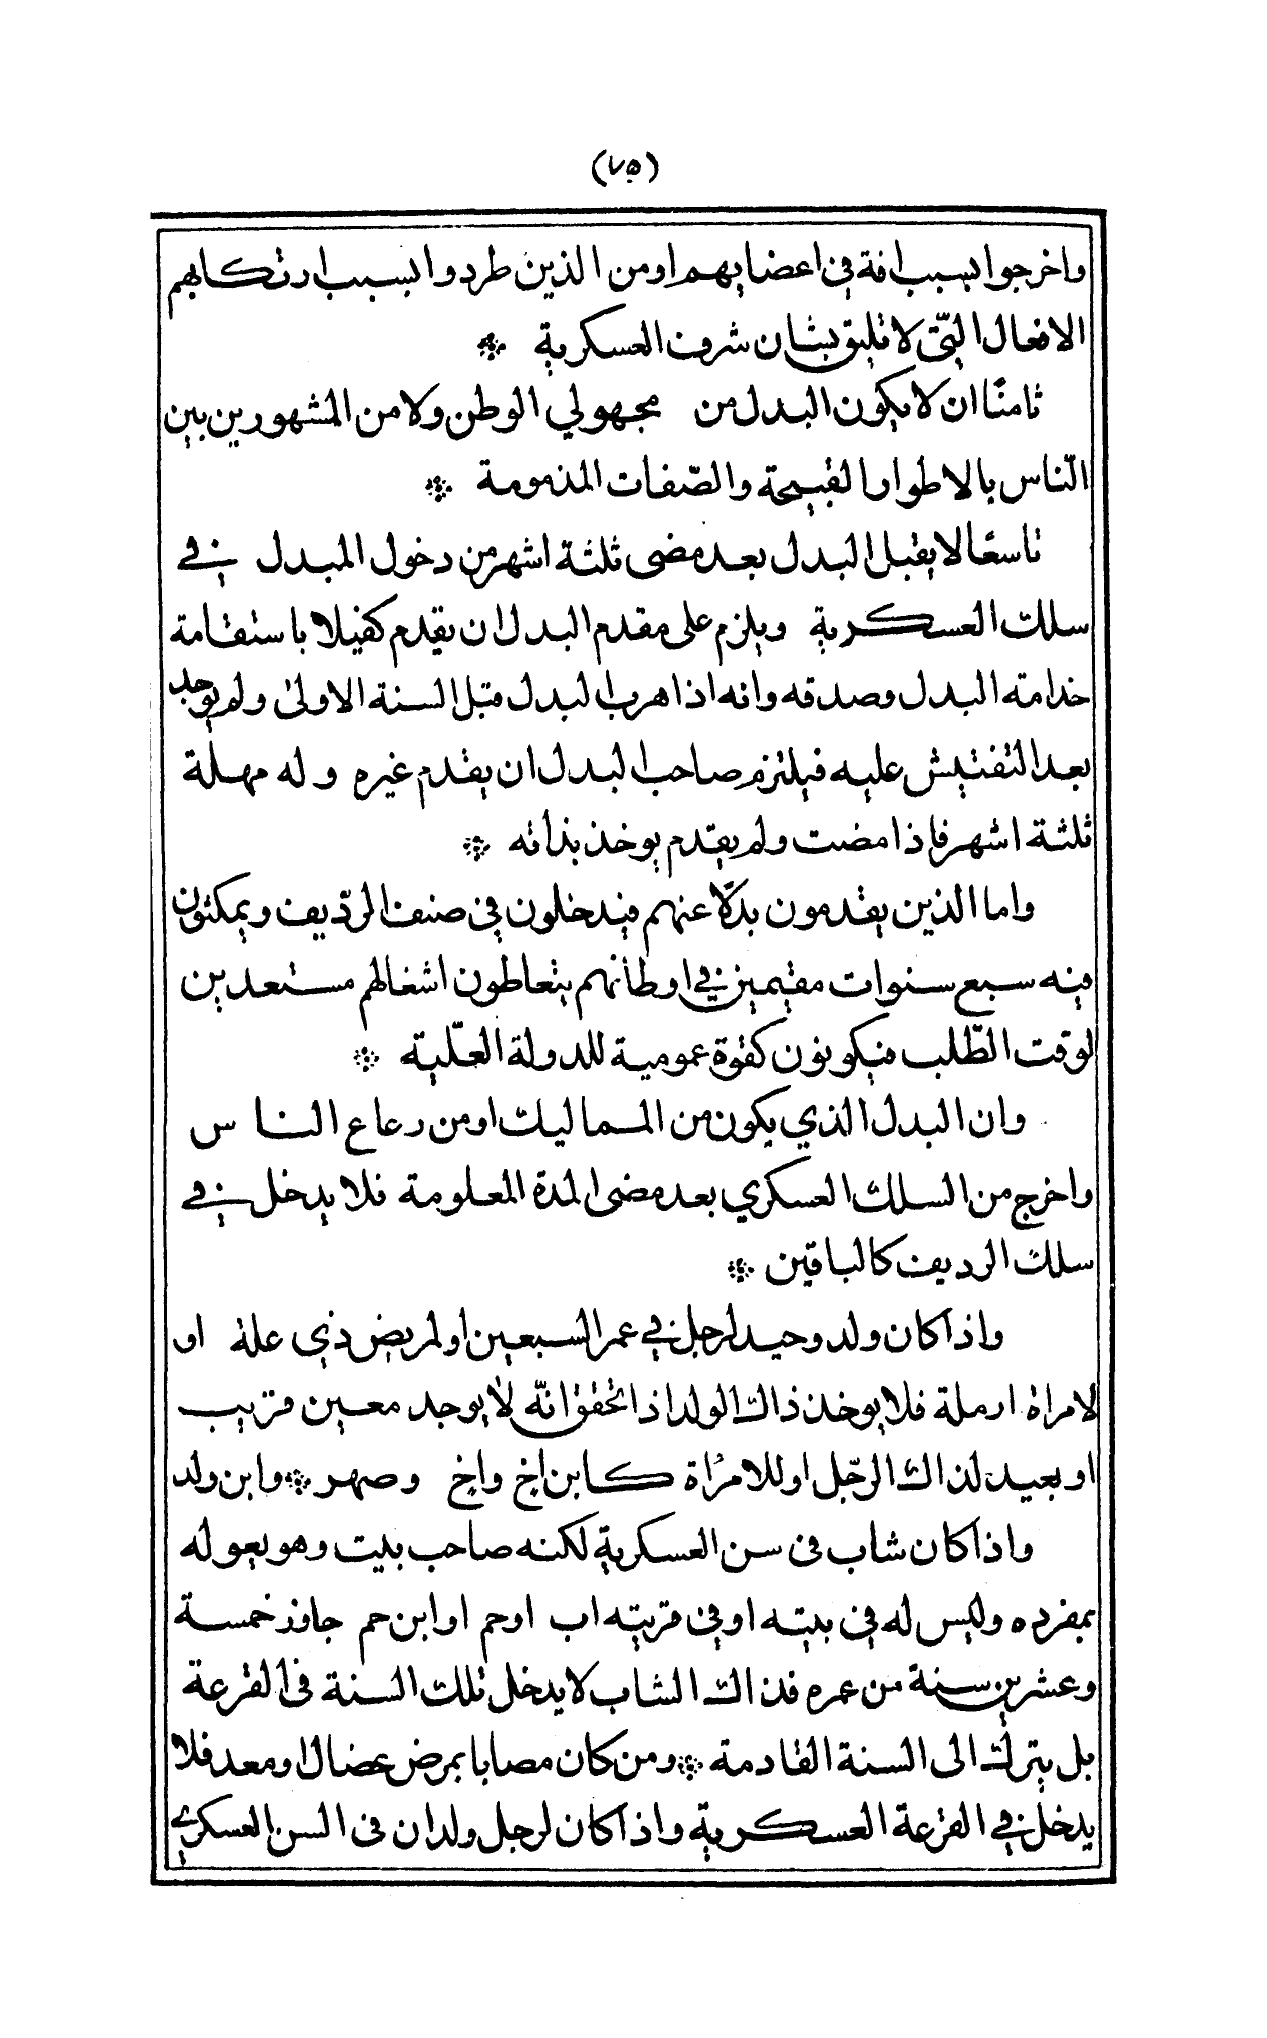 (٧٥)
واخرجوا بسبب افة في اعضايهم او من الذين طردوا بسبب ارتكابهم
الافعال التي لا تليق بشان شرف العسكرية *
ثامنًا ان لا يكون البدل من مجهولي الوطن ولا من المشهورين بين
النّاس بالاطوار القبيحة والصّفات المذمومة *
تاسعًا لا يقبل البدل بعد مضى ثلثة اشهر من دخول المبدل في
سلك العسكرية ويلزم على مقدم البدل ان يقدم كفيلا باستقامة
خدامته البدل وصدقه وانه اذا هرب البدل قبل السنة الاولى ولم يوجد
بعد التفتيش عليه فيلتزم صاحب البدل ان يقدم غيره وله مهلة
ثلثة اشهر فاذا مضت ولم يقدم يوخذ بذاته *
واما الذين يقدمون بدلًا عنهم فيدخلون في صنف الرّديف ويمكثون
فيه سبع سنوات مقيمين في اوطانهم يتعاطون اشغالهم مستعدين
لوقت الطّلب فيكونون كقوة عمومية للدولة العلّية *
وان البدل الذي يكون من المماليك او من رعاع الناس
واخرج من السلك العسكري بعد مضى المدة المعلومة فلا يدخل في
سلك الرديف كالباقين *
واذا كان ولد وحيد لرجل في عمر السبعين او لمريض ذي علة او
لامراة ارملة فلا يوخذ ذاك الولد اذا تحقق انّه لا يوجد معين قريب
او بعيد لذاك الرجّل او للامرُاة كابن اخ واخ وصهر * وابن ولد
واذا كان شاب فى سن العسكرية لكنه صاحب بيت وهو يعوله
بمفرده وليس له في بيته او في قريته اب او حم او ابن حم جاوز خمسة
وعشرين سنة من عمره فذاك الشاب لا يدخل تلك السنة في القرعة
بل يترك الى السنة القادمة * ومن كان مصابا بمرض عضال او معد فلا
يدخل في القرعة العسكرية واذا كان لرجل ولدان فى السن العسكري